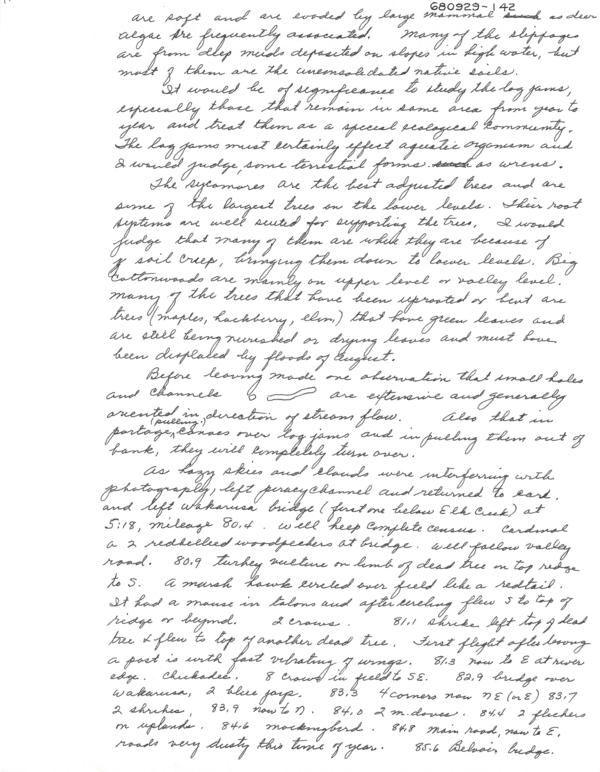 G80929-142
are soft and are eroded by large mammal such as deer
algae are frequently associated. Many of the slippages
are from deep muds deposited on slopes in high water, but
most of them are the unconsolidated native soils.
It would be of significance to study the log jams,
especially those that remain in same area from year to
year and treat them as a special ecological community.
The log jams must certainly effect aquatic organism and
I would judge, some terrestial forms such as wrens.
The sycamores are the best adjusted trees and are
some of the largest trees on the lower levels. Their root
systems are well suited for supporting the trees. I would
judge that many of them are where they are because of
of soil creep, bringing them down to lower levels. Big
Cottonwoods are mainly on upper level or valley level.
Many of the trees that have been uprooted or bent are
trees (maples, hackberry, elm) that have green leaves and
are still being nurished or drying leaves and must have
been displaced by floods of August.
Before leaving made one observation that small holes
and channels are extensive and generally
oriented in direction of stream flow. Also that in
portage (pulling) canoes over log jams and in pulling them out of
bank, they will completely turn over.
As hazy skies and clouds were interferring with
photography, left piracy channel and returned to card.
and left Wakarusa bridge (first one below Elk Creek) at
5:18, mileage 80.4. Will keep complete census. Cardinal
a 2 redbellied woodpeckers at bridge. Will follow valley
road. 80.9 turkey vulture on limb of dead tree on top redge
to S. A marsh hawk circled over field like a redtail.
It had a mouse in talons and after circling flew S to top of
ridge or beyond. 2 crows. 81.1 shrike left top of dead
tree & flew to top of another dead tree. First flight after leaving
a post is with fast vibrating of wings. 81.3 now to E at river
edge. Chickadee. 8 crows in field to SE. 82.9 bridge over
Wakarusa, 2 blue jays. 83.3 4 corners now NE (or E) 83.7
2 shrikes. 83.9 now to N. 84.0 2 m. doves. 84.4 2 flickers
on uplands. 84.6 mockingbird. 84.8 main road, now to E,
roads very dusty this time of year. 85.6 Belvoir bridge.